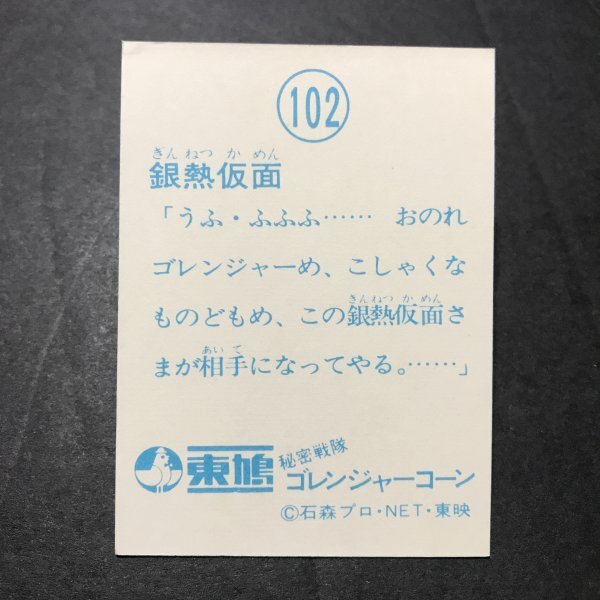 102
ぎん ねつ か めん
銀熱仮面
「うふ・ふふふ…… おのれ
ゴレンジャーめ、こしゃくな
きんねつ か めん
ものどもめ、この銀熱仮面さ
あい て
まが相手になってやる。……」
東鳩
秘密戦隊
ゴレンジャーコーン
©石森プロ・NET・東映